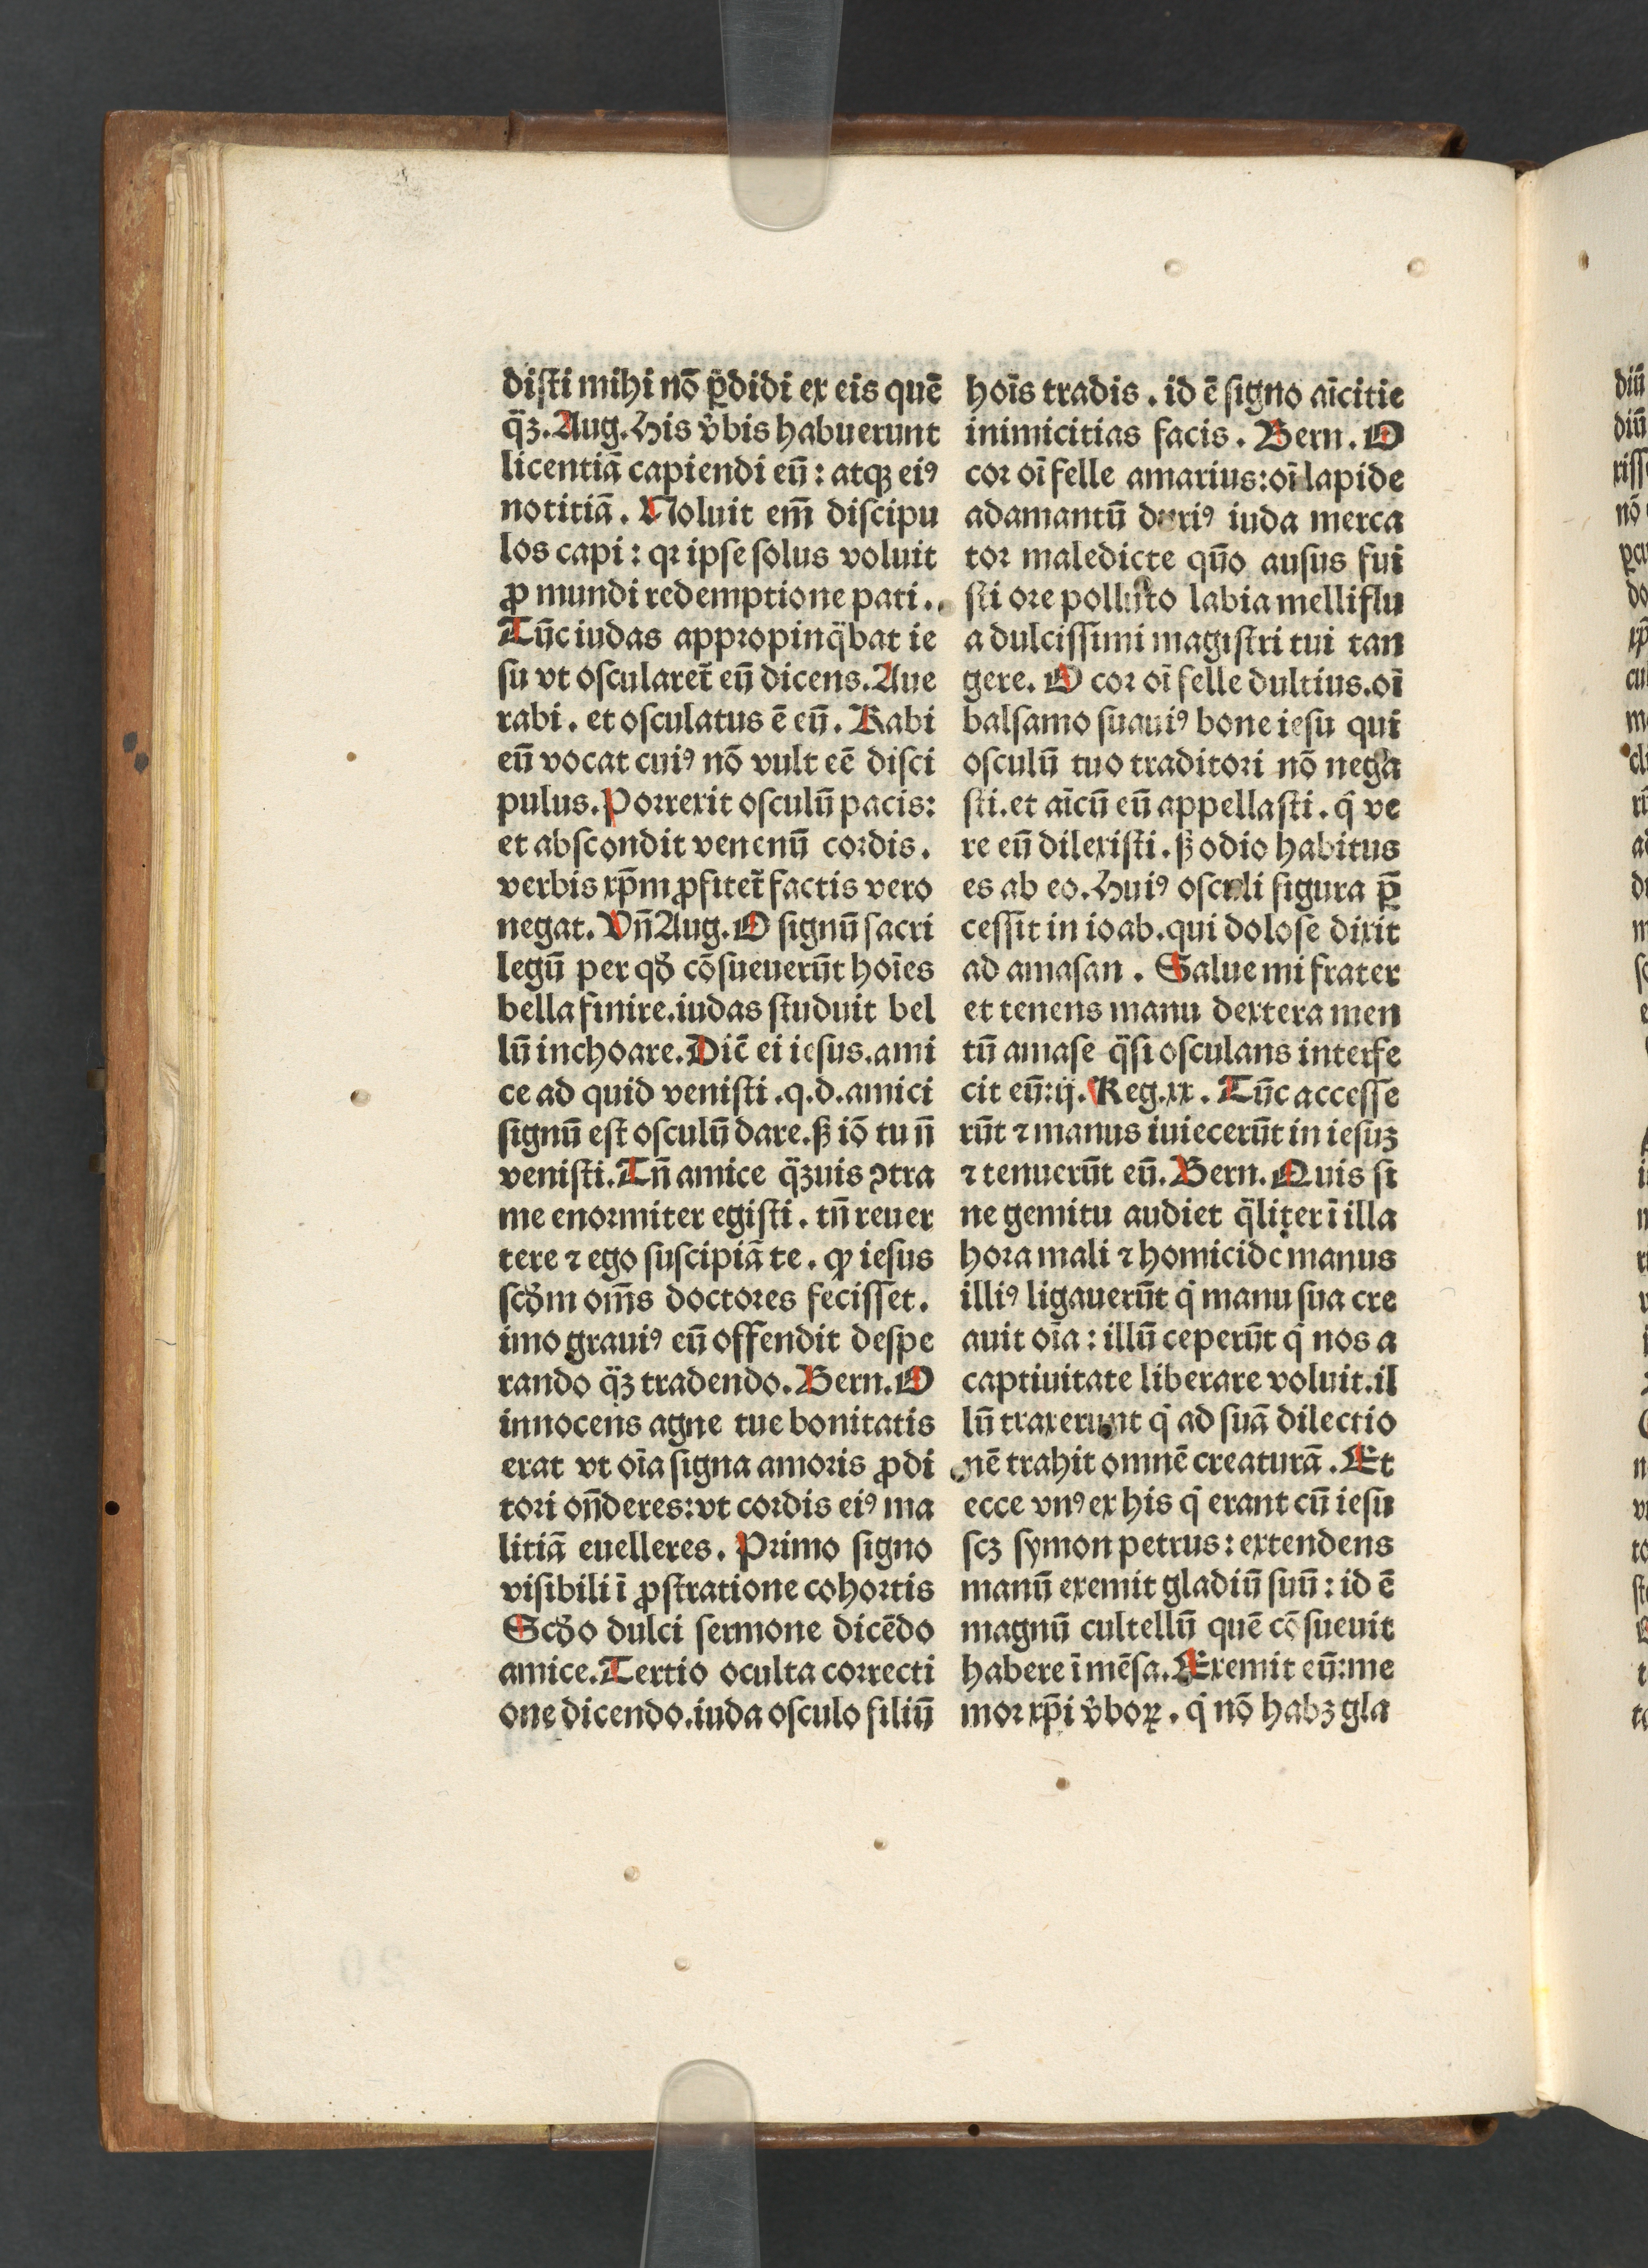 diſti mihi nō ꝑdidi ex eis quē
q̈ꝫ. Aug. His v̂bis habuerunt
licentiā capiendi eū : atqꝫ eiꝰ
notitiā. Noluit em̄ diſcipu
los capi : qꝛ ipſe ſolus voluit
ꝓ mundi redemptione pati..
Tūc iudas appropinq̈bat ie
ſu vt oſcularet̄ eū dicens. Aue
rabi. et oſculatus ē eū. Rabi
eū vocat cuiꝰ nō vult eē diſci
pulus. Porrexit oſculū pacis:
et abſcondit venenū cordis.
verbis xp̄m ꝓfitet̄ factis vero
negat. Vn̄ Aug. O ſignū ſacri
legū per qđ cōſueuerūt hoīes
bella finire. iudas ſtuduit bel
lū inchoare. Dic̄ ei ieſus. ami
ce ad quid veniſti. q. d. amici
ſignū eſt oſculū dare. ꝭ iō tu n̄
veniſti. Tn̄ amice q̈ꝫuis ꝯtra
me enormiter egiſti. tn̄ reuer
tere ⁊ ego ſuſcipiā te. qđ ieſus
ſcđm om̄s doctores feciſſet.
imo grauiꝰ eū offendit deſpe
rando q̈ꝫ tradendo. Bern. O
innocens agne tue bonitatis
erat vt oīa ſigna amoris ꝓdi
tori on̄deres: vt cordis eiꝰ ma
litiā euelleres. Primo ſigno
viſibili ī ꝓſtratione cohortis
Scđo dulci ſermone dicēdo
amice. Tertio oculta correcti
one dicendo. iuda oſculo filiū
hoīs tradis. id ē ſigno aīcitie
inimicitias facis. Bern. O
cor oī felle amarius: oī lapide
adamantū duriꝰ iuda merca
tor maledicte quō auſus fui
ſti ore polluto labia melliflu
a dulciſſimi magiſtri tui tan
gere. O cor oī felle dultius. oī
balſamo ſuauiꝰ bone ieſu qui
oſculū tuo traditori nō nega
ſti. et aīcū eū appellaſti. q̄ ve
re eū dilexiſti. ꝭ odio habitus
es ab eo. Huiꝰ oſculi figura p̄
ceſſit in ioab. qui doloſe dixit
ad amaſan. Salue mi frater
et tenens manu dextera men
tū amaſe q̈ſi oſculans interfe
cit eū: ij. Reg. xx. Tūc acceſſe
rūt ⁊ manus iuiecerūt in ieſuꝫ
⁊ tenuerūt eū. Bern. Quis ſi
ne gemitu audiet q̈liter ī illa
hora mali ⁊ homicide manus
illiꝰ ligauerūt q̇ manu ſua cre
auit oīa : illū ceperūt q̇ nos a
captiuitate liberare voluit. il
lū traxerunt q̇ ad ſuā dilectio
nē trahit omnē creaturā. Et
ecce vnꝰ ex his q̇ erant cū ieſu
ſcꝫ ſymon petrus : extendens
manū exemit gladiū ſuū : id ē
magnū cultellū quē cōſueuit
habere ī mēſa. Exemit eū: me
mor xp̄i v̂boꝝ. q̇ nō habꝫ gla